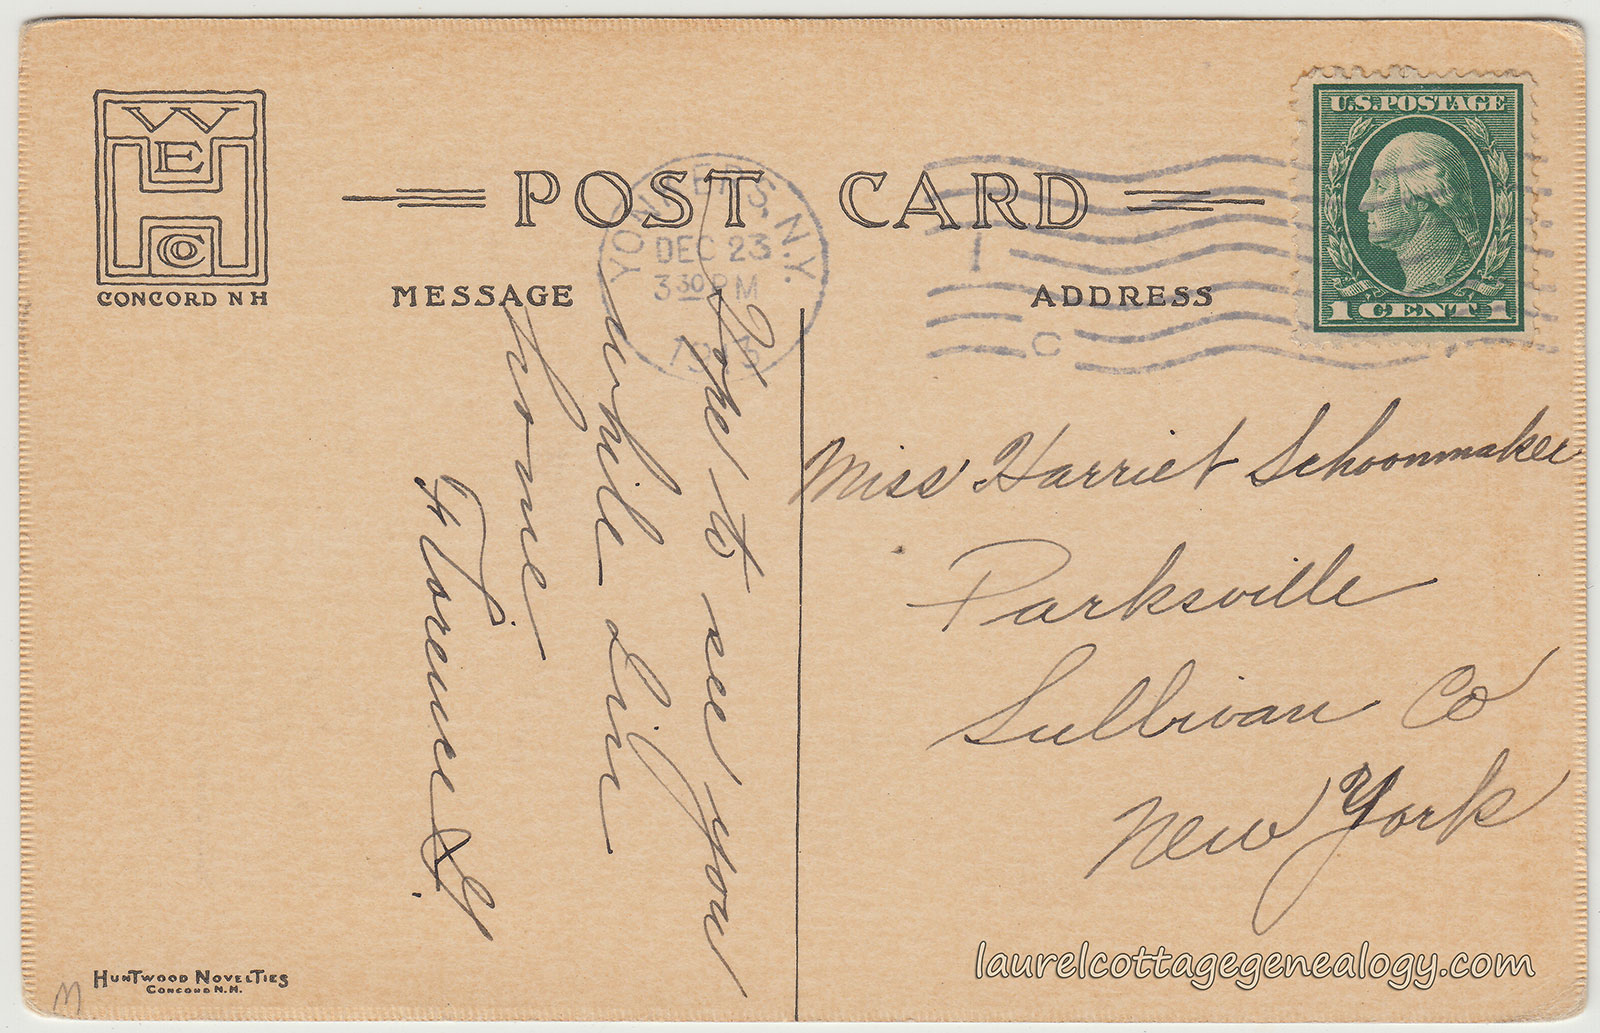 W
E
H
CO
CONCORD N H
POST CARD
MESSAGE
ADDRESS
YONKERS, N.Y.
DEC 23
3 30 PM
191
1
C
U.S. POSTAGE
1 CENT 1
Hope to see you
while I'm
home
Florence S.
Miss Harriet Schoonmaker
Parksville
Sullivan Co
New York
HUNTWOOD NOVELTIES
CONCORD N.H.
M
laurelcottagegenealogy.com